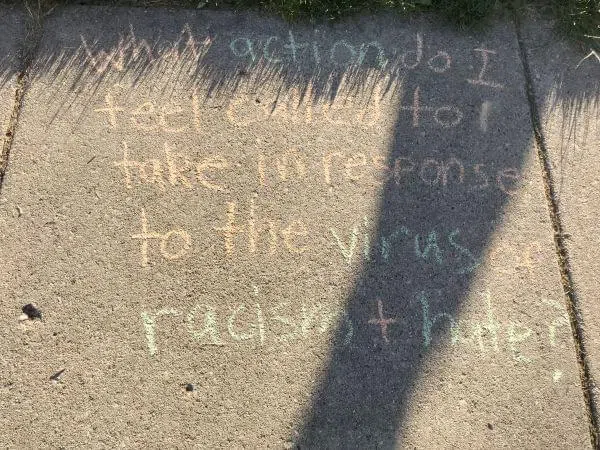 What action do I
feel called to
take in response
to the virus of
racism + hate?